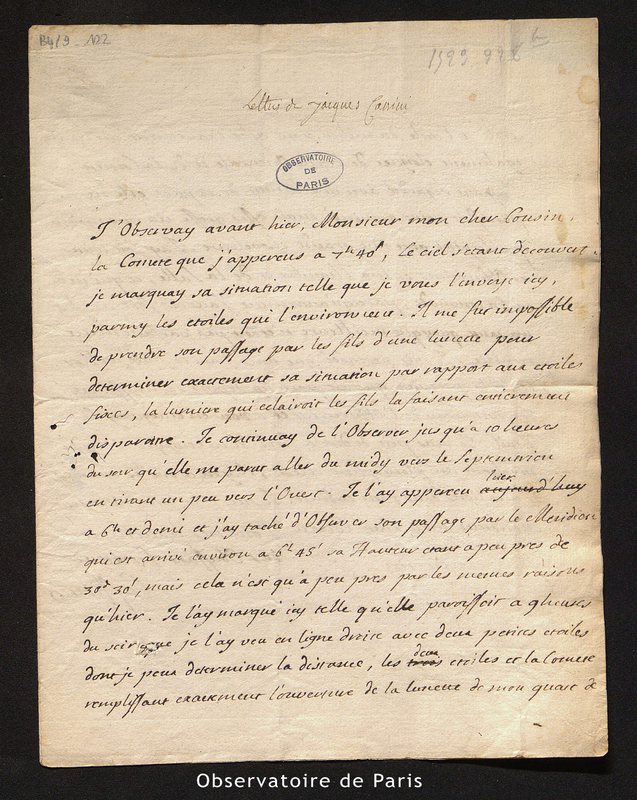 B4/9 - 122
Lettre de Jacques Cassini
OBSERVATOIRE
DE
PARIS
J'Observay avant hier, Monsieur mon cher Cousin,
la Comete que j'apperceus a 7h 40', le ciel s'etant decouvert.
je marquay sa situation telle que je vous l'envoye icy,
parmy les etoiles qui l'environnent. Il me fut impossible
de prendre son passage par les fils d'une lunete pour
determiner exactement sa situation par rapport aux etoiles
fixes, la lumiere qui eclairoit les fils la faisant entierement
disparoitre. Je continuay de l'Observer jusqu'a 10 heures
du soir qu'elle me parut aller du midy vers le Septentrion
en tirant un peu vers l'Ouest. Je l'ay apperceu aujourd'huy
a 6h et demi et j'ay taché d'Observer son passage par le Meridien
qui est arrivé environ a 6h 45' sa Hauteur etant a peu pres de
30d 30', mais cela n'est qu'a peu pres par les memes raisons
qu'hier. Je l'ay marqué icy telle qu'elle paroissoit a 9 heures
du soir que je l'ay veu en ligne droite avec deux petites etoiles
deux
dont je peux determiner la distance, les trois etoiles et la Comete
remplissant exactement l'ouverture de la lunette de mon quart de
Observatoire de Paris